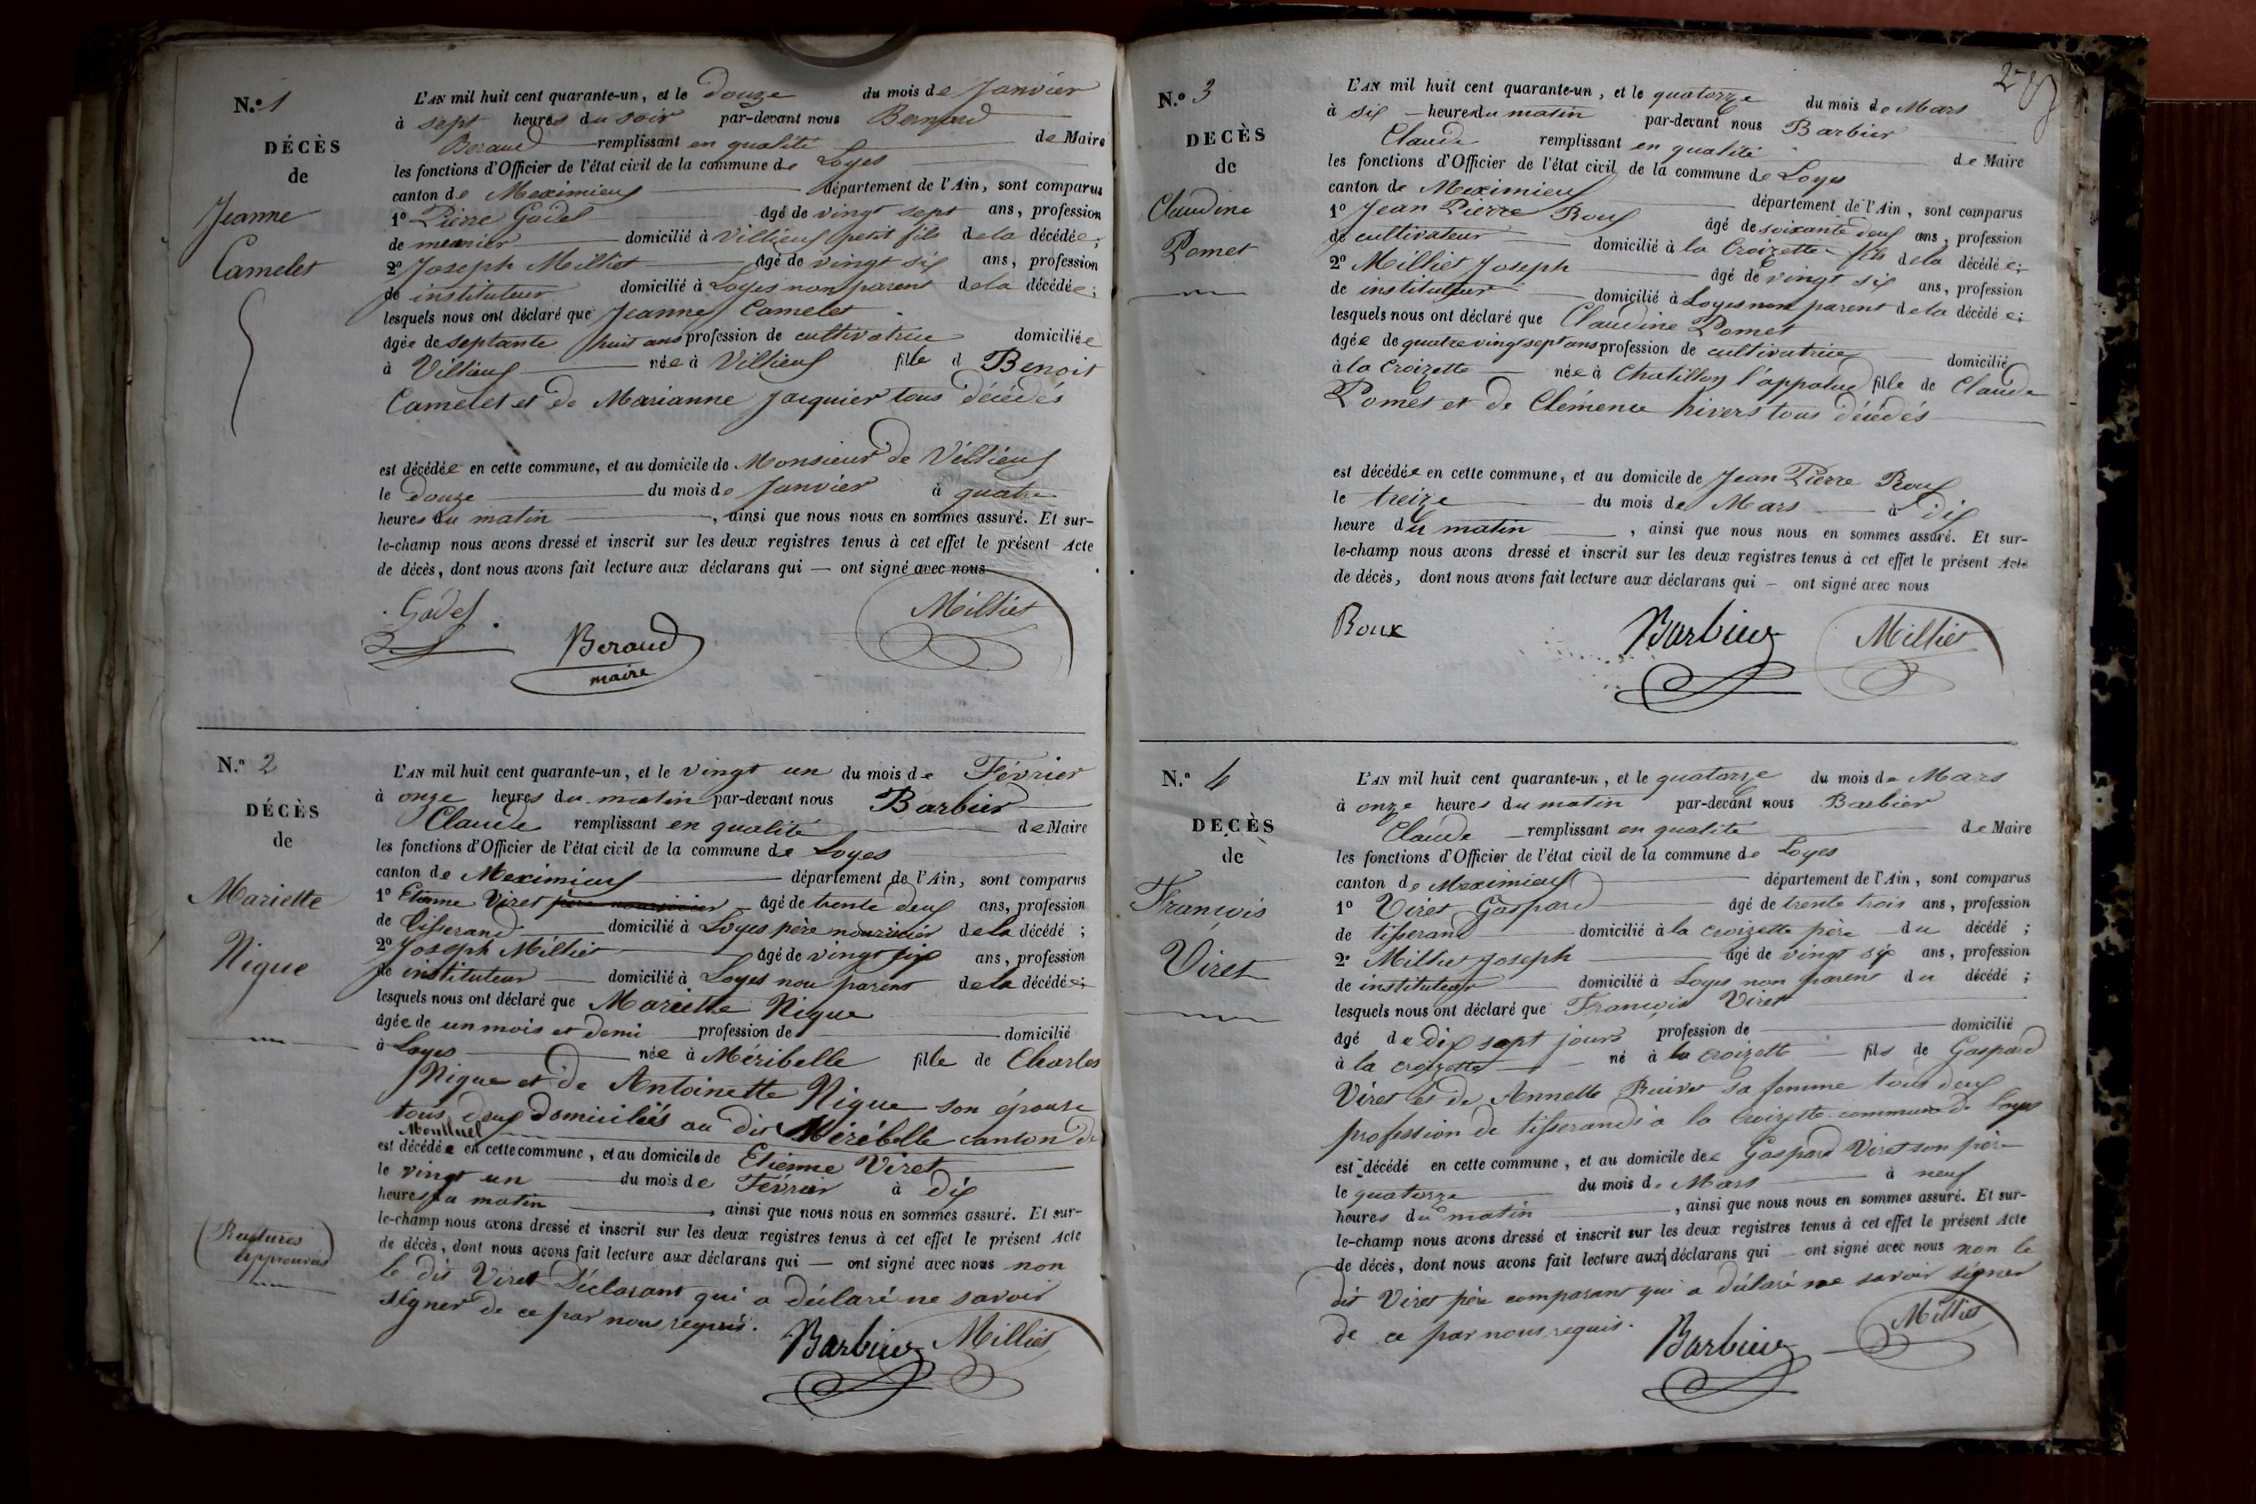 N.° 1
DÉCÈS
de
Jeanne
Camelet
L'AN mil huit cent quarante-un, et le douze du mois de Janvier
à sept heures du soir par-devant nous Bernard
Beraud remplissant en qualité de Maire
les fonctions d'Officier de l'état civil de la commune de Loyes
canton de Meximieux département de l'Ain, sont comparus
1° Pierre Godet âgé de vingt sept ans, profession
de menier domicilié à Villieux petit fils de la décédée;
2° Joseph Milliet âgé de vingt six ans, profession
de instituteur domicilié à Loyes non parent de la décédée;
lesquels nous ont déclaré que Jeanne Camelet
âgée de septante huit ans profession de cultivatrice domiciliée
à Villieux née à Villieux fille d Benoit
Camelet et de Marianne Jacquier tous décédés
est décédée en cette commune, et au domicile de Monsieur de Villieux
le douze du mois de Janvier à quatre
heures du matin, ainsi que nous nous en sommes assuré. Et sur-
le-champ nous avons dressé et inscrit sur les deux registres tenus à cet effet le présent Acte
de décès, dont nous avons fait lecture aux déclarans qui — ont signé avec nous
Godet
Beraud
maire
Milliet
N.° 2
DÉCÈS
de
Mariette
Nique
L'AN mil huit cent quarante-un, et le vingt un du mois de Février
à onze heures du matin par-devant nous Barbier
Claude remplissant en qualité de Maire
les fonctions d'Officier de l'état civil de la commune de Loyes
canton de Meximieux département de l'Ain, sont comparus
1° Etienne Viret père nourricier âgé de trente deux ans, profession
de tisserand domicilié à Loyes père nourricier de la décédé;
2° Joseph Milliet âgé de vingt six ans, profession
de instituteur domicilié à Loyes non parent de la décédée;
lesquels nous ont déclaré que Mariette Nique
âgée de un mois et demi profession de domicilié
à Loyes née à Méribelle fille de Charles
Nique et de Antoinette Nique son épouse
tous deux domiciliés au dit Mirébelle canton de
Montluel
est décédée en cette commune, et au domicile de Etienne Viret
le vingt un du mois de Février à dix
heures du matin, ainsi que nous nous en sommes assuré. Et sur-
le-champ nous avons dressé et inscrit sur les deux registres tenus à cet effet le présent Acte
de décès, dont nous avons fait lecture aux déclarans qui — ont signé avec nous non
le dit Viret Déclarant qui a déclaré ne savoir
signer de ce par nous requis.
approuvées
Barbier Milliet
N.° 3
DECÈS
de
Claudine
Pomet
L'AN mil huit cent quarante-un, et le quatorze du mois de Mars
à six heures du matin par-devant nous Barbier
Claude remplissant en qualité de Maire
les fonctions d'Officier de l'état civil de la commune de Loyes
canton de Meximieux département de l'Ain, sont comparus
1° Jean Pierre Roux âgé de soixante deux ans, profession
de cultivateur domicilié à la Croizette fils de la décédée;
2° Milliet Joseph âgé de vingt six ans, profession
de instituteur domicilié à Loyes non parent de la décédée;
lesquels nous ont déclaré que Claudine Pomet
âgée de quatre vingt sept ans profession de cultivatrice domicilié
à la Croizette née à Chatillon l'appalud fille de Claude
Pomet et de Clémence hivers tous décédés
est décédée en cette commune, et au domicile de Jean Pierre Roux
le treize du mois de Mars à dix
heure du matin, ainsi que nous nous en sommes assuré. Et sur-
le-champ nous avons dressé et inscrit sur les deux registres tenus à cet effet le présent Acte
de décès, dont nous avons fait lecture aux déclarans qui — ont signé avec nous
Roux Barbier Milliet
N.° 4
DECÈS
de
François
Viret
L'AN mil huit cent quarante-un, et le quatorze du mois de Mars
à onze heures du matin par-devant nous Barbier
Claude remplissant en qualité de Maire
les fonctions d'Officier de l'état civil de la commune de Loyes
canton de Meximieux département de l'Ain, sont comparus
1° Viret Gaspard âgé de trente trois ans, profession
de tisserand domicilié à la croizette père du décédé;
2° Milliet Joseph âgé de vingt six ans, profession
de instituteur domicilié à Loyes non parent du décédé;
lesquels nous ont déclaré que François Viret
âgé de dix sept jours profession de domicilié
à la croizette né à la croizette fils de Gaspard
Viret et de Annette sa femme tous deux
profession de tisserands à la Croizette commune de Loyes
est décédé en cette commune, et au domicile de Gaspard Viret son père
le quatorze du mois de Mars à neuf
heures du matin, ainsi que nous nous en sommes assuré. Et sur-
le-champ nous avons dressé et inscrit sur les deux registres tenus à cet effet le présent Acte
de décès, dont nous avons fait lecture aux déclarans qui — ont signé avec nous non le
dit Viret père comparant qui a déclaré ne savoir signer
de ce par nous requis.
Barbier Milliet